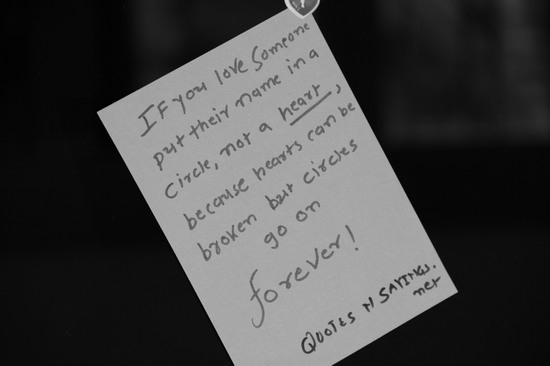 If you love Someone
put their name in a
Circle, not a heart,
because hearts can be
broken but circles
go on
forever!
QUOTES N SAYINGS.
net